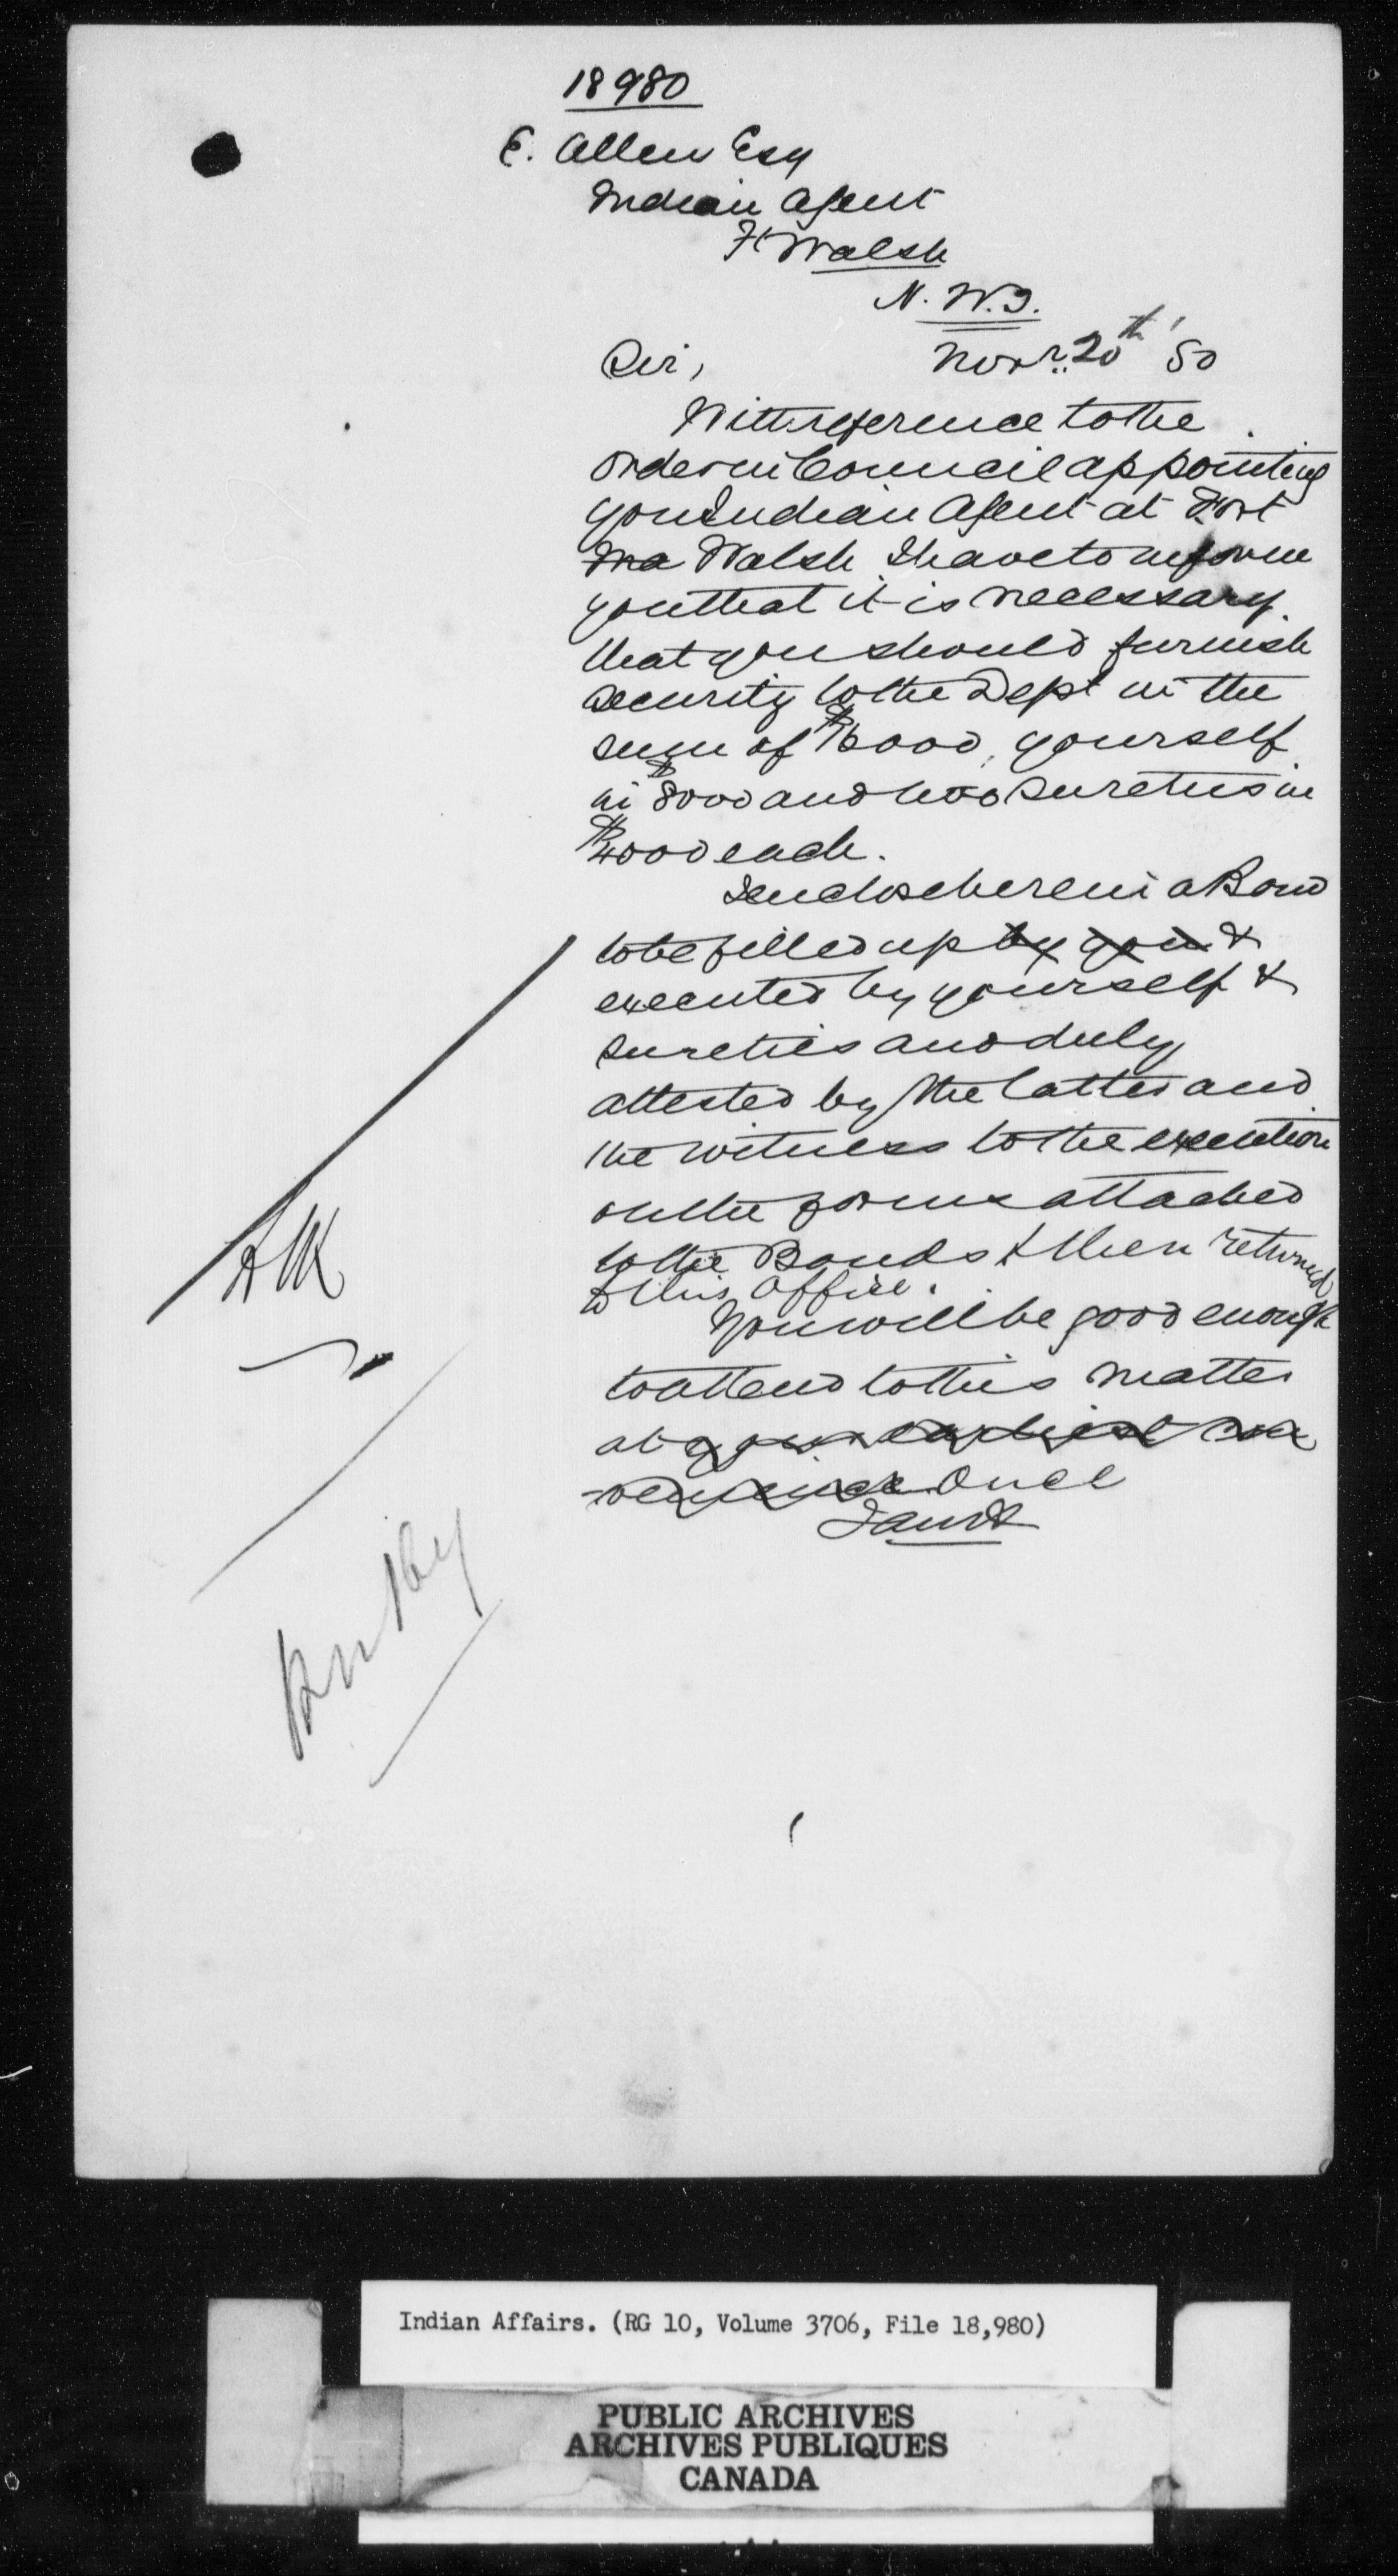 18980
E. Allen Esq
Indian Agent
Ft Walsh
N. W. T.
Novr. 20th '80
Sir,
With reference to the
Order in Council appointing
you Indian Agent at Fort
Ma Walsh I have to inform
you that it is necessary
that you should furnish
security to the Dept in the
sum of $16000, yourself
in $8000 and two sureties in
$4000 each.
I enclose herein a Bond
to be filled up by you &
executed by yourself &
sureties and duly
attested by the latter and
the witness to the execution
on the forms attached
to the Bonds & then returned
to this Office.
You will be good enough
to attend to this matter
at your earliest con
-venience Once
I am &
Indian Affairs. (RG 10, Volume 3706, File 18,980)
PUBLIC ARCHIVES
ARCHIVES PUBLIQUES
CANADA